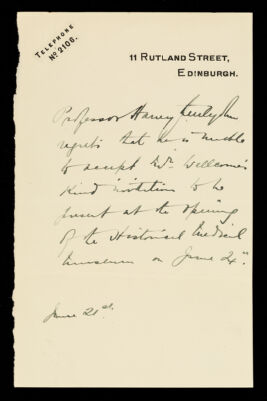 TELEPHONE
No 2106.
11 RUTLAND STREET,
EDINBURGH.
Professor Harvey Littlejohn
regrets that he is unable
to accept Mr. Wellcome's
kind invitation to be
present at the opening
of the Historical Medical
Museum on June 24th.
June 21st.